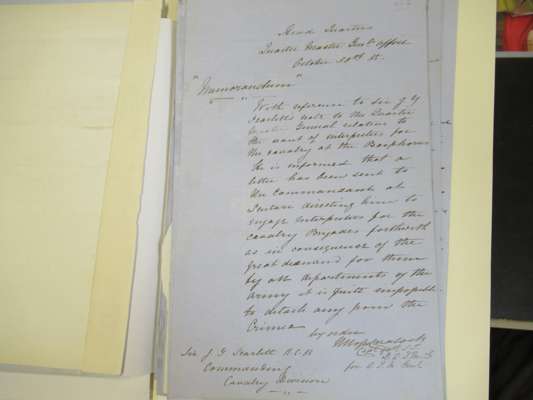 Head Quarters
Quarter Master Genl's Office
October
"Memorandum"
With reference to Sir J Y
Scarlett's note to the Quarter
Master General relative to
the want of interpreters for
the cavalry at the Bosphorus
He is informed that a
letter has been sent to
the Commandant at
Scutari directing him to
engage interpreters for the
cavalry Brigades forthwith
as in consequence of the
great demand for them
by all departments of the
army it is quite impossible
to detach any from the
Crimea
by order
for Q M Genl
Sir J Y Scarlett K.C.B
Commanding
Cavalry Division